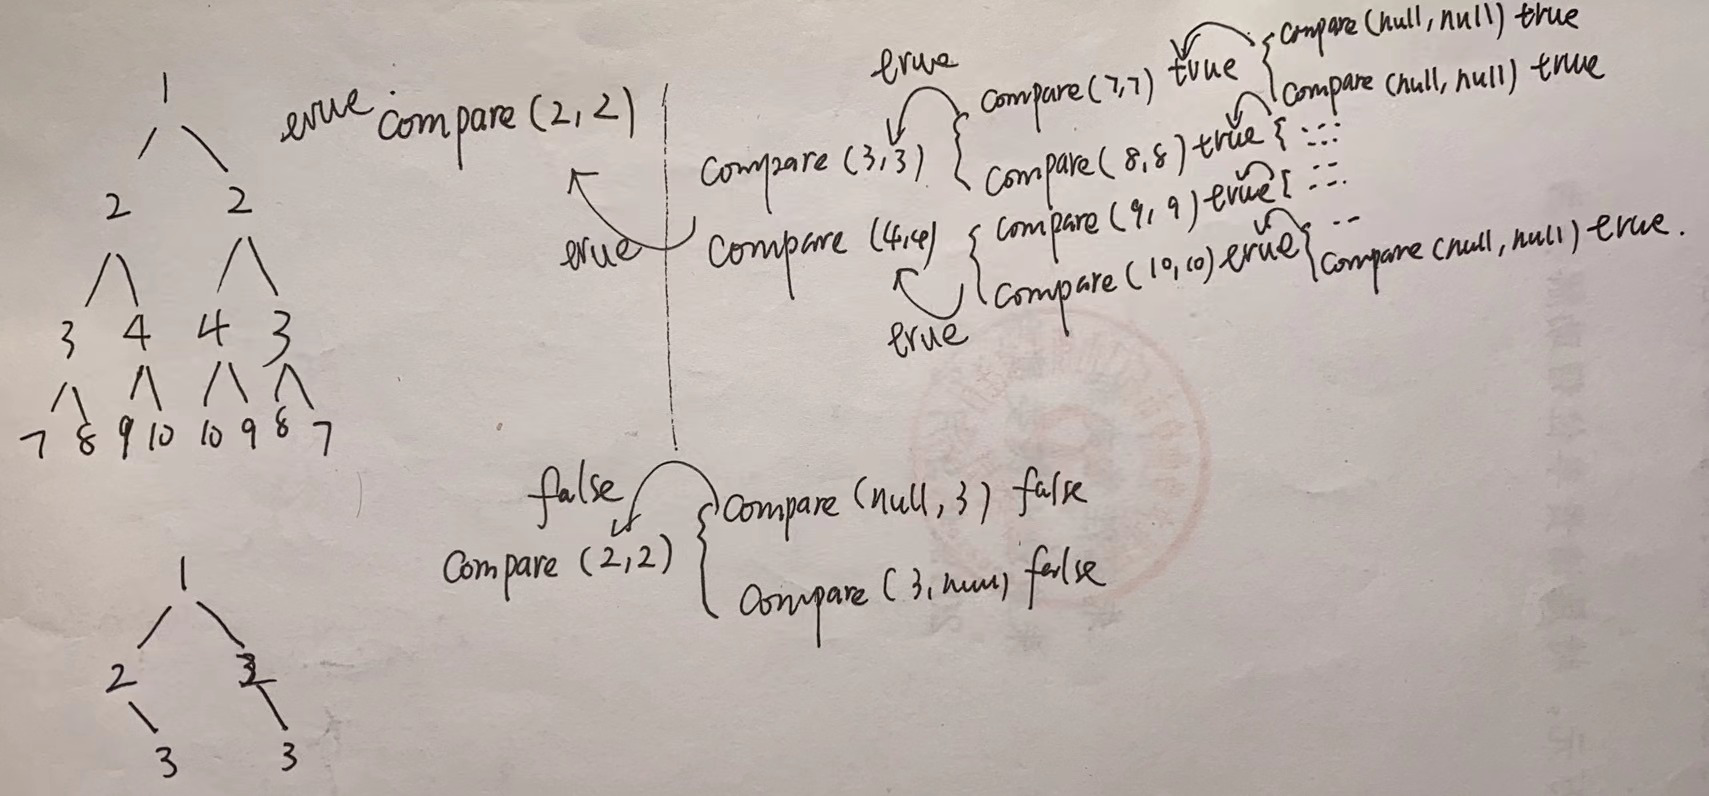 1
2 2
3 4 4 3
7 8 9 10 10 9 8 7
true compare (2,2)
true
true
compare (3,3)
compare (7,7) true
compare (null, null) true
compare (null, null) true
compare (8,8) true
compare (4,4)
compare (9,9) true
compare (10,10) true
compare (null, null) true.
true
false
compare (2,2)
compare (null, 3) false
compare (3, null) false
1
2
3 3